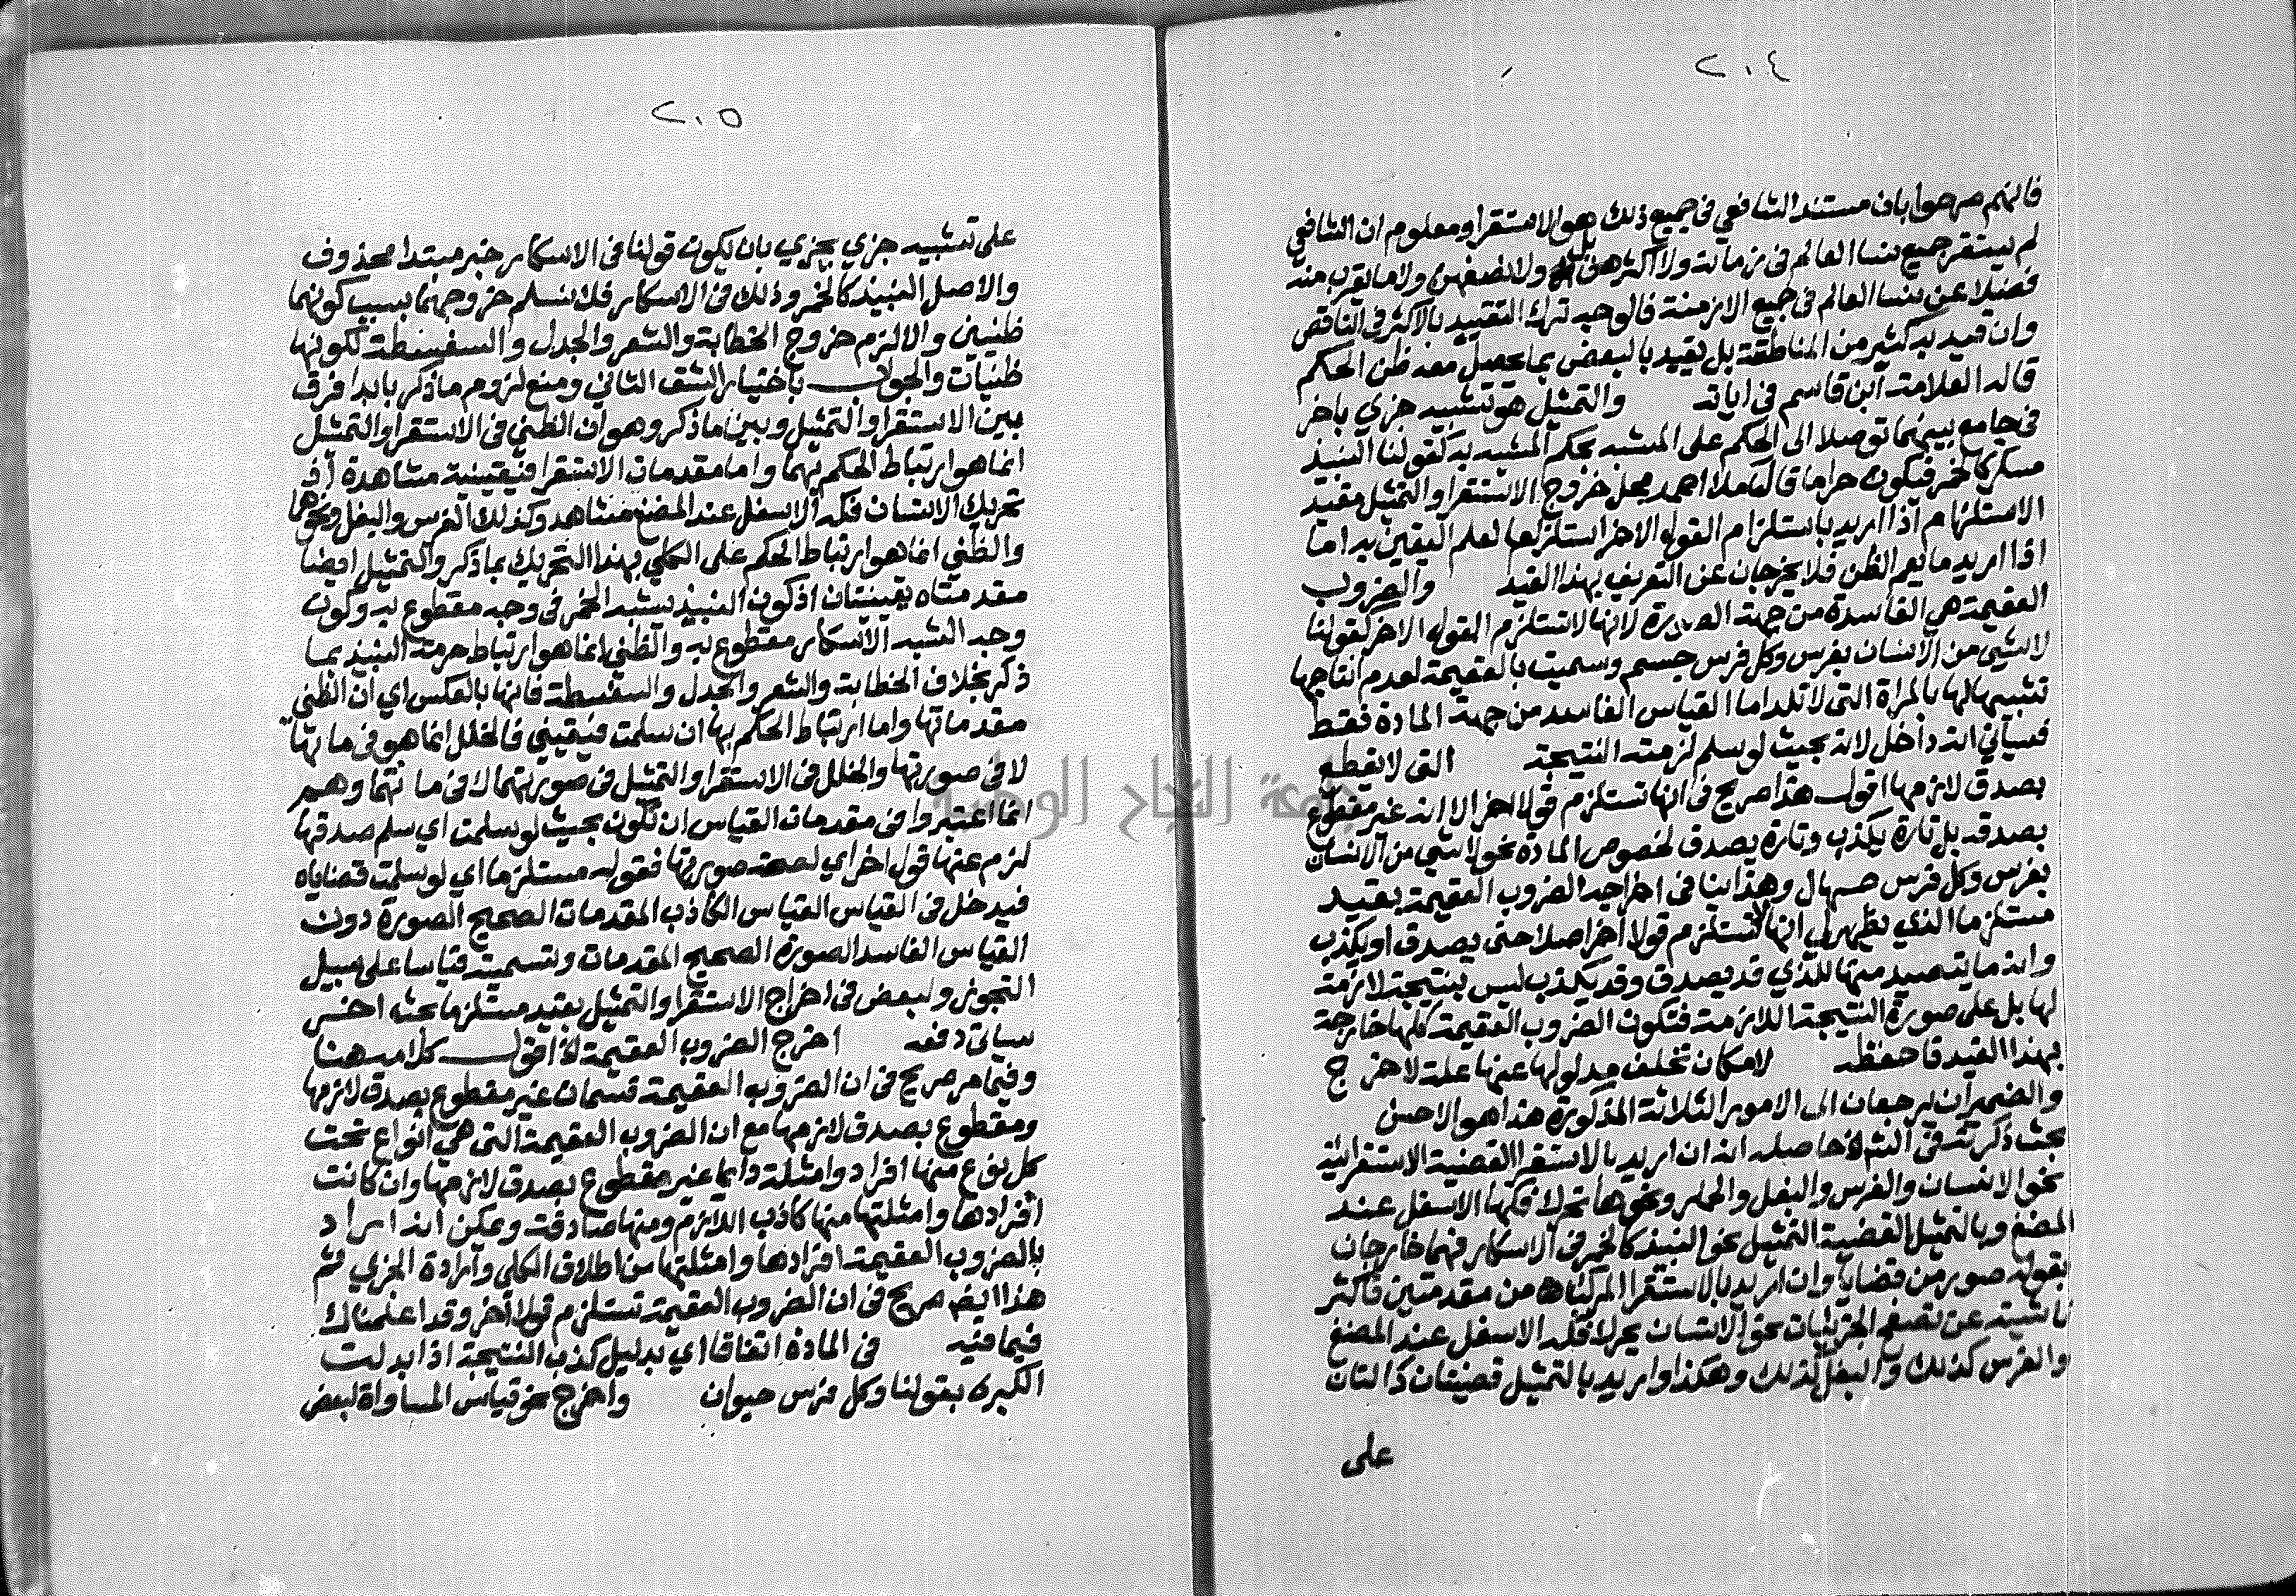 ٢٠٤
فانهم صرحوا بان مستند الشافعي في جميع ذلك هو الاستقرا ومعلوم ان الشافعي
لم يستقر جميع نسا العالم في زمانه ولا اكثرهن بل ولا نصفهن ولا ما يقرب منه
فضلا عن نسا العالم في جميع الازمنة فالوجه ترك التقييد بالاكثر في الناقص
وان قيد به كثير من المناطقة بل يقيد بالبعض بما يحصل معه ظن الحكم
قاله العلامة ابن قاسم في اياته والتمثيل هو تشبيه جزي باخر
في جامع بينهما توصلا الى الحكم على المشبه بحكم المشبه به كقولنا النبيذ
مسكر كالخمر فيكون حراما قال احمد محل خروج الاستقرا والتمثيل مقيد
الاستلزام اذا اريد باستلزام القول الاخر استلزام العلم اليقين به اما
اذا اريد ما يعم الظن فلا يخرجان عن التعريف بهذا القيد والضروب
العقيمة هي الفاسدة من جهة الصورة لانها لا تستلزم القول الاخر كقولنا
لا شي من الانسان بفرس وكل فرس جسم وسميت بالعقيمة لعدم انتاجها
تشبيها لها بالمراة التي لا تلد اما القياس الفاسد من جهة المادة فقط
فسياتي انه داخل لانه بحيث لو سلم لزمته النتيجة التي لا يقطع
بصدق لازمها اقول هذا صريح في انها تستلزم قولا اخر الا انه غير مقطوع
بصدقه بل تارة يكذب وتارة يصدق لخصوص المادة نحو لا شي من الانسان
بفرس وكل فرس صهال وهذا ينافي اخراجه الضروب العقيمة بقيد
مستلزما الذي يظهر لي انها لا تستلزم قولا اخر اصلا حتى يصدق او يكذب
وان ما يتصيد منها للذي قد يصدق وقد يكذب ليس بنتيجة لازمة
لها بل على صورة النتيجة اللازمة فتكون الضروب العقيمة كلها خارجة
بهذا القيد فاحفظه لامكان تخلف مدلولها عنها علة لاخرج
والضميران يرجعان الى الامور الثلاثة المذكورة هذا هو الاحسن
بحث ذكرته في الشرح حاصله انه ان اريد بالاستقرا القضية الاستقرائية
نحو الانسان والفرس والبغل والحمار ونحوها تحرك فكها الاسفل عند
المضغ وبالتمثيل القضية التمثيل نحو النبيذ كالخمر في الاسكار فهما خارجان
بقوله صور من قضايا وان اريد بالاستقرا المركبات من مقدمتين فاكثر
ناشية عن تصفح الجزئيات نحو الانسان يحرك فكه الاسفل عند المضغ
والفرس كذلك والبغل كذلك وهكذا واريد بالتمثيل قضيتان دالتان
على
٢٠٥
على تشبيه جزي بجزي بان يكون قولنا في الاسكار خبر مبتدا محذوف
والاصل النبيذ كالخمر وذلك في الاسكار فلا نسلم خروجهما بسبب كونهما
ظنيين والا لزم خروج الخطابة والشعر والجدل والسفسطة لكونها
ظنيات والجواب باختيار الشق الثاني ومنع لزوم ما ذكر بابدا فرق
بين الاستقرا والتمثيل وبين ما ذكر وهو ان الظني في الاستقرا والتمثيل
انما هو ارتباط الحكم بهما واما مقدمات الاستقرا فيقينية مشاهدة اذ
تحريك الانسان فكه الاسفل عند المضغ مشاهد وكذلك الفرس والبغل ونحوها
والظني انما هو ارتباط الحكم على الكلي بهذا التحريك بما ذكر والتمثيل ايضا
مقدمتاه يقينيتان اذ كون النبيذ يشبه الخمر في وجه مقطوع به وكون
وجه الشبه الاسكار مقطوع به والظني انما هو ارتباط حرمة النبيذ بما
ذكر بخلاف الخطابة والشعر والجدل والسفسطة فانها بالعكس اي ان الظني
مقدماتها واما ارتباط الحكم بها ان سلمت فيقيني فالخلل انما هو في مادتها
لا في صورتها والخلل في الاستقرا والتمثيل في صورتهما لا في مادتهما وهم
انما اعتبروا في مقدمات القياس ان تكون بحيث لو سلمت اي سلم صدقها
لزم عنها قول اخر اي لصحة صورتها فقوله مستلزما اي لو سلمت قضاياه
فيدخل في القياس القياس الكاذب المقدمات الصحيح الصورة دون
القياس الفاسد الصورة الصحيح المقدمات وتسميته قياسا على سبيل
التجوز ولبعض في اخراج الاستقرا والتمثيل بقيد مستلزما بحث اخر
سياتي دفعه اخرج الضروب العقيمة اقول كلامه هنا
وفيما مر صريح في ان الضروب العقيمة قسمان غير مقطوع بصدق لازمها
ومقطوع بصدق لازمها مع ان الضروب العقيمة التي هي انواع تحت
كل نوع منها افراد وامثلة دايما غير مقطوع بصدق لازمها وان كانت
افرادها وامثلتها منها كاذب اللازم ومنها صادقه ويمكن انه اراد
بالضروب العقيمة افرادها وامثلتها من اطلاق الكلي وارادة الجزي ثم
هذا ايضا صريح في ان الضروب العقيمة تستلزم قولا اخر وقد اعلمناك
فيما فيه في المادة اتفاقا اي بدليل كذب النتيجة اذا بدلت
الكبرى بقولنا وكل فرس حيوان واخرج نحو قياس المساواة لبعض
جامعة النجاح الوطنية